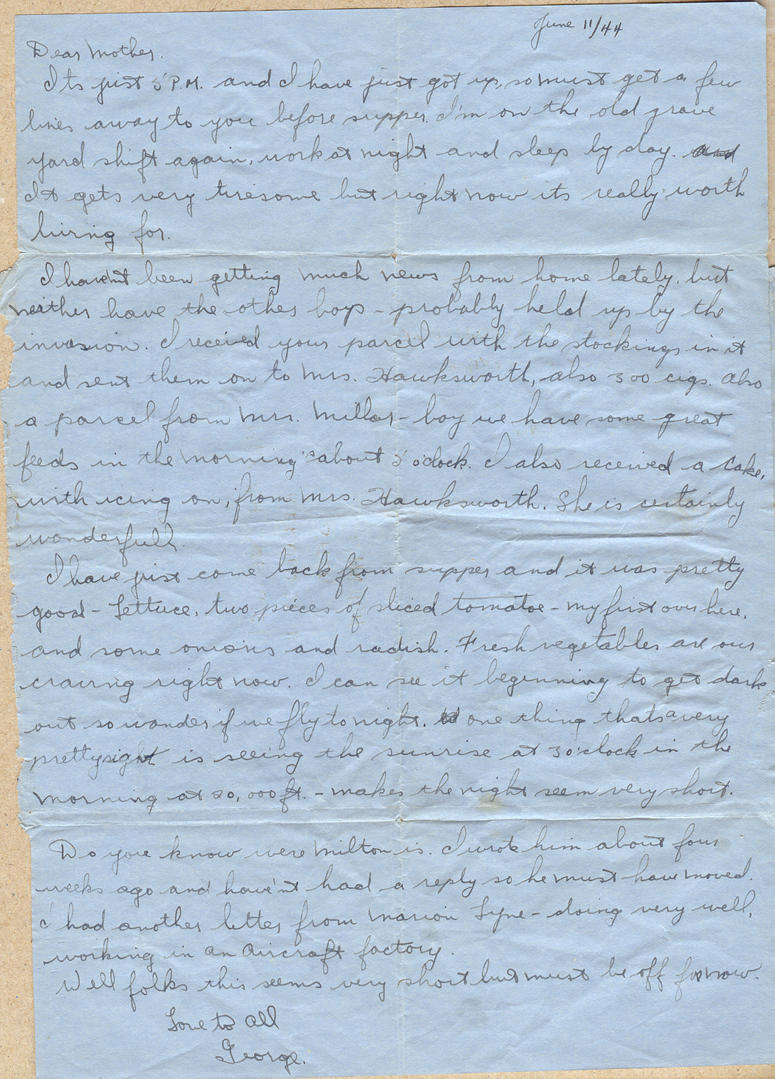 June 11/44
Dear Mother.
Its just 5 P.M. and I have just got up, so must get a few
lines away to you before supper. I'm on the old grave
yard shift again, work at night and sleep by day. and
It gets very tiresome but right now its really worth
living for.
I haven't been getting much news from home lately, but
neither have the other boys - probably held up by the
invasion. I received your parcel with the stockings in it
and sent them on to Mrs. Hawksworth, also 300 cigs. Also
a parcel from Mrs. Millar - boy we have some great
feeds in the morning about 5 o'clock. I also received a cake,
with icing on, from Mrs. Hawksworth. She is certainly
wonderfull.
I have just come back from supper and it was pretty
good - Lettuce, two pieces of sliced tomatoe - my first over here,
and some onions and radish. Fresh vegetables are our
craving right now. I can see it beginning to get dark
out so wonder if we fly to night. one thing thats a very
pretty sight is seeing the sunrise at 3 o'clock in the
morning at 20,000 ft. - makes the night seem very short.
Do you know were Milton is. I wrote him about four
weeks ago and have'nt had a reply so he must have moved.
I had another letter from Marion Lyne - doing very well,
working in an aircraft factory.
Well folks this seems very short but must be off for now.
Love to all
George.